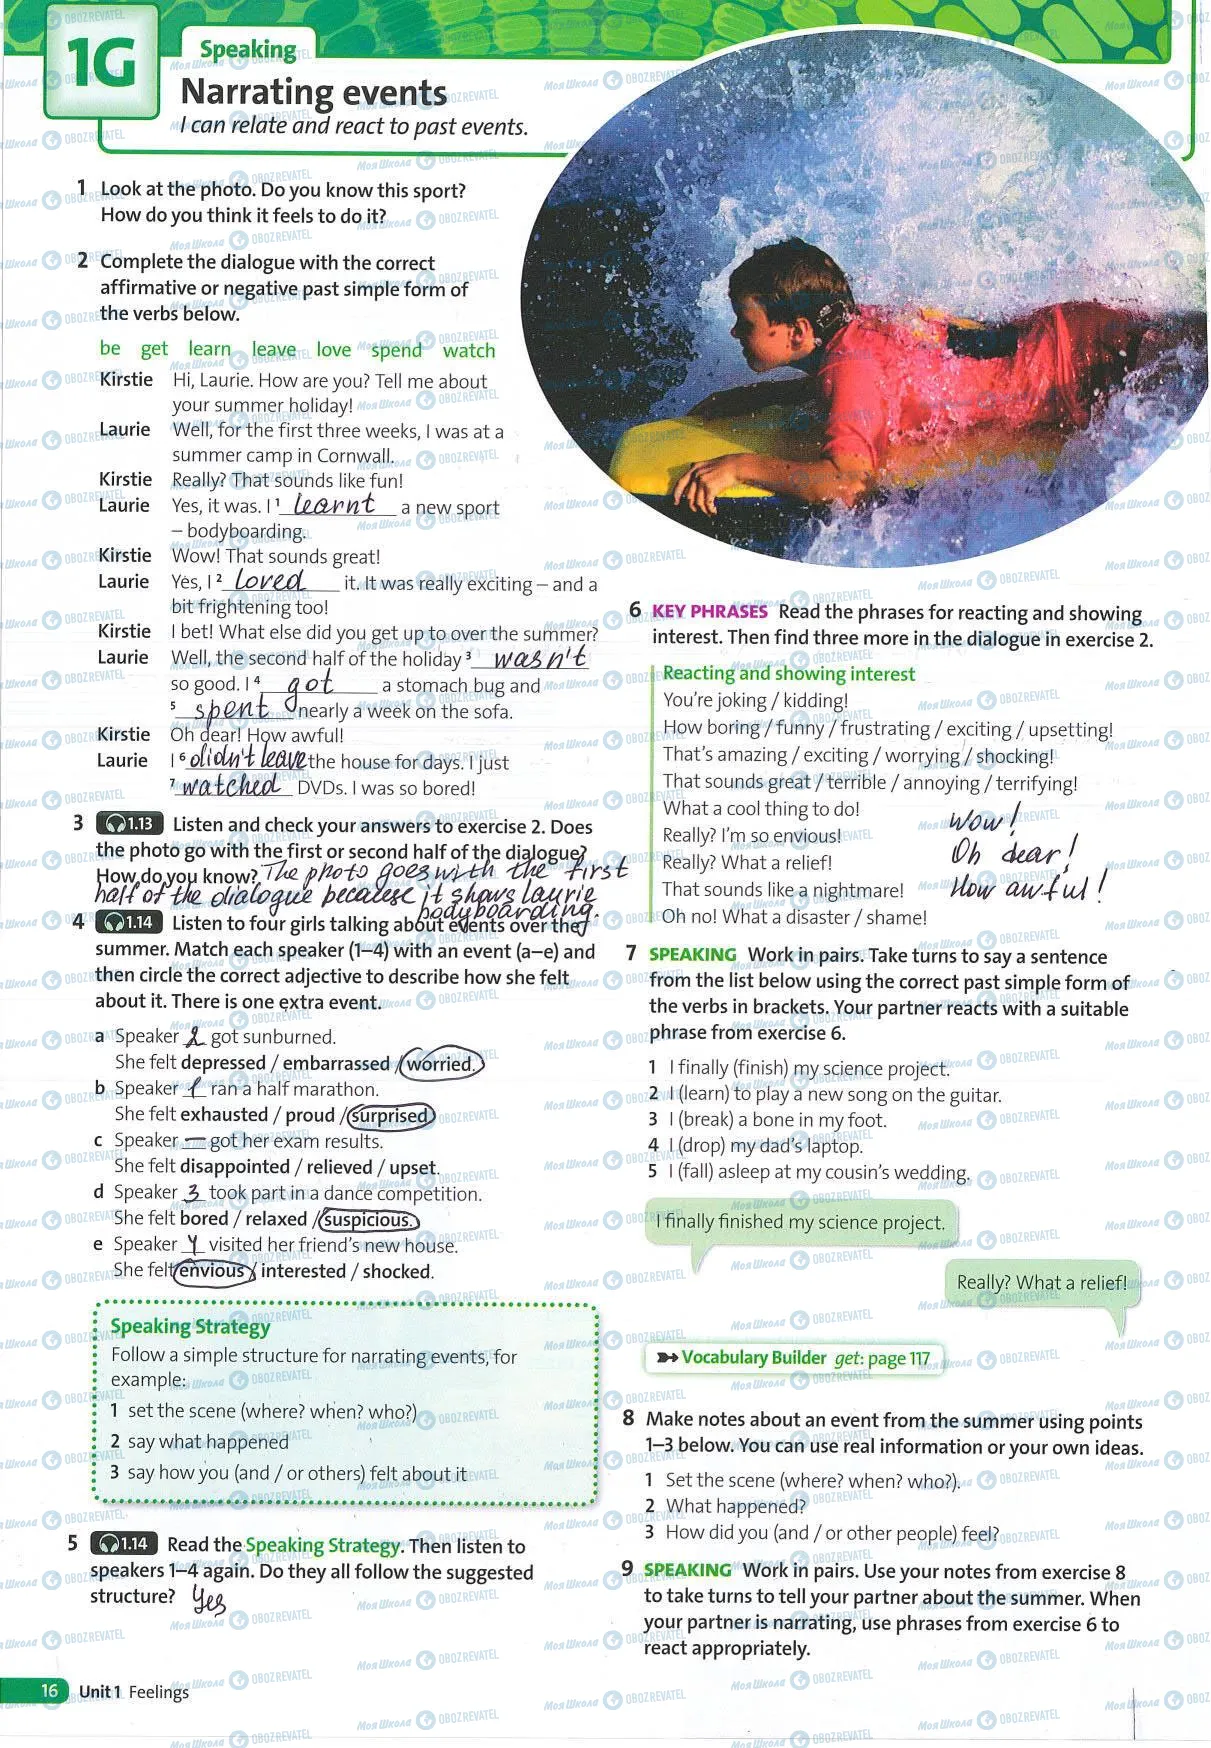 1G
Speaking
Narrating events
I can relate and react to past events.
1 Look at the photo. Do you know this sport?
How do you think it feels to do it?
2 Complete the dialogue with the correct
affirmative or negative past simple form of
the verbs below.
be get learn leave love spend watch
Kirstie Hi, Laurie. How are you? Tell me about
your summer holiday!
Laurie Well, for the first three weeks, I was at a
summer camp in Cornwall.
Kirstie Really? That sounds like fun!
Laurie Yes, it was. I 1 learnt a new sport
– bodyboarding.
Kirstie Wow! That sounds great!
Laurie Yes, I 2 loved it. It was really exciting – and a
bit frightening too!
Kirstie I bet! What else did you get up to over the summer?
Laurie Well, the second half of the holiday 3 wasn't
so good. I 4 got a stomach bug and
5 spent nearly a week on the sofa.
Kirstie Oh dear! How awful!
Laurie I 6 didn't leave the house for days. I just
7 watched DVDs. I was so bored!
3 1.13 Listen and check your answers to exercise 2. Does
the photo go with the first or second half of the dialogue?
How do you know? The photo goes with the first
half of the dialogue because it shows laurie
bodyboarding.
4 1.14 Listen to four girls talking about events over the
summer. Match each speaker (1–4) with an event (a–e) and
then circle the correct adjective to describe how she felt
about it. There is one extra event.
a Speaker 2 got sunburned.
She felt depressed / embarrassed / worried.
b Speaker 1 ran a half marathon.
She felt exhausted / proud / surprised
c Speaker — got her exam results.
She felt disappointed / relieved / upset.
d Speaker 3 took part in a dance competition.
She felt bored / relaxed / suspicious.
e Speaker 4 visited her friend's new house.
She felt envious / interested / shocked.
Speaking Strategy
Follow a simple structure for narrating events, for
example:
1 set the scene (where? when? who?)
2 say what happened
3 say how you (and / or others) felt about it
5 1.14 Read the Speaking Strategy. Then listen to
speakers 1–4 again. Do they all follow the suggested
structure? Yes
6 KEY PHRASES Read the phrases for reacting and showing
interest. Then find three more in the dialogue in exercise 2.
Reacting and showing interest
You're joking / kidding!
How boring / funny / frustrating / exciting / upsetting!
That's amazing / exciting / worrying / shocking!
That sounds great / terrible / annoying / terrifying!
What a cool thing to do!
Really? I'm so envious!
Really? What a relief!
That sounds like a nightmare!
Oh no! What a disaster / shame!
Wow!
Oh dear!
How awful!
7 SPEAKING Work in pairs. Take turns to say a sentence
from the list below using the correct past simple form of
the verbs in brackets. Your partner reacts with a suitable
phrase from exercise 6.
1 I finally (finish) my science project.
2 I (learn) to play a new song on the guitar.
3 I (break) a bone in my foot.
4 I (drop) my dad's laptop.
5 I (fall) asleep at my cousin's wedding.
I finally finished my science project.
Really? What a relief!
Vocabulary Builder get: page 117
8 Make notes about an event from the summer using points
1–3 below. You can use real information or your own ideas.
1 Set the scene (where? when? who?).
2 What happened?
3 How did you (and / or other people) feel?
9 SPEAKING Work in pairs. Use your notes from exercise 8
to take turns to tell your partner about the summer. When
your partner is narrating, use phrases from exercise 6 to
react appropriately.
16 Unit 1 Feelings
МояШкола OBOZREVATEL